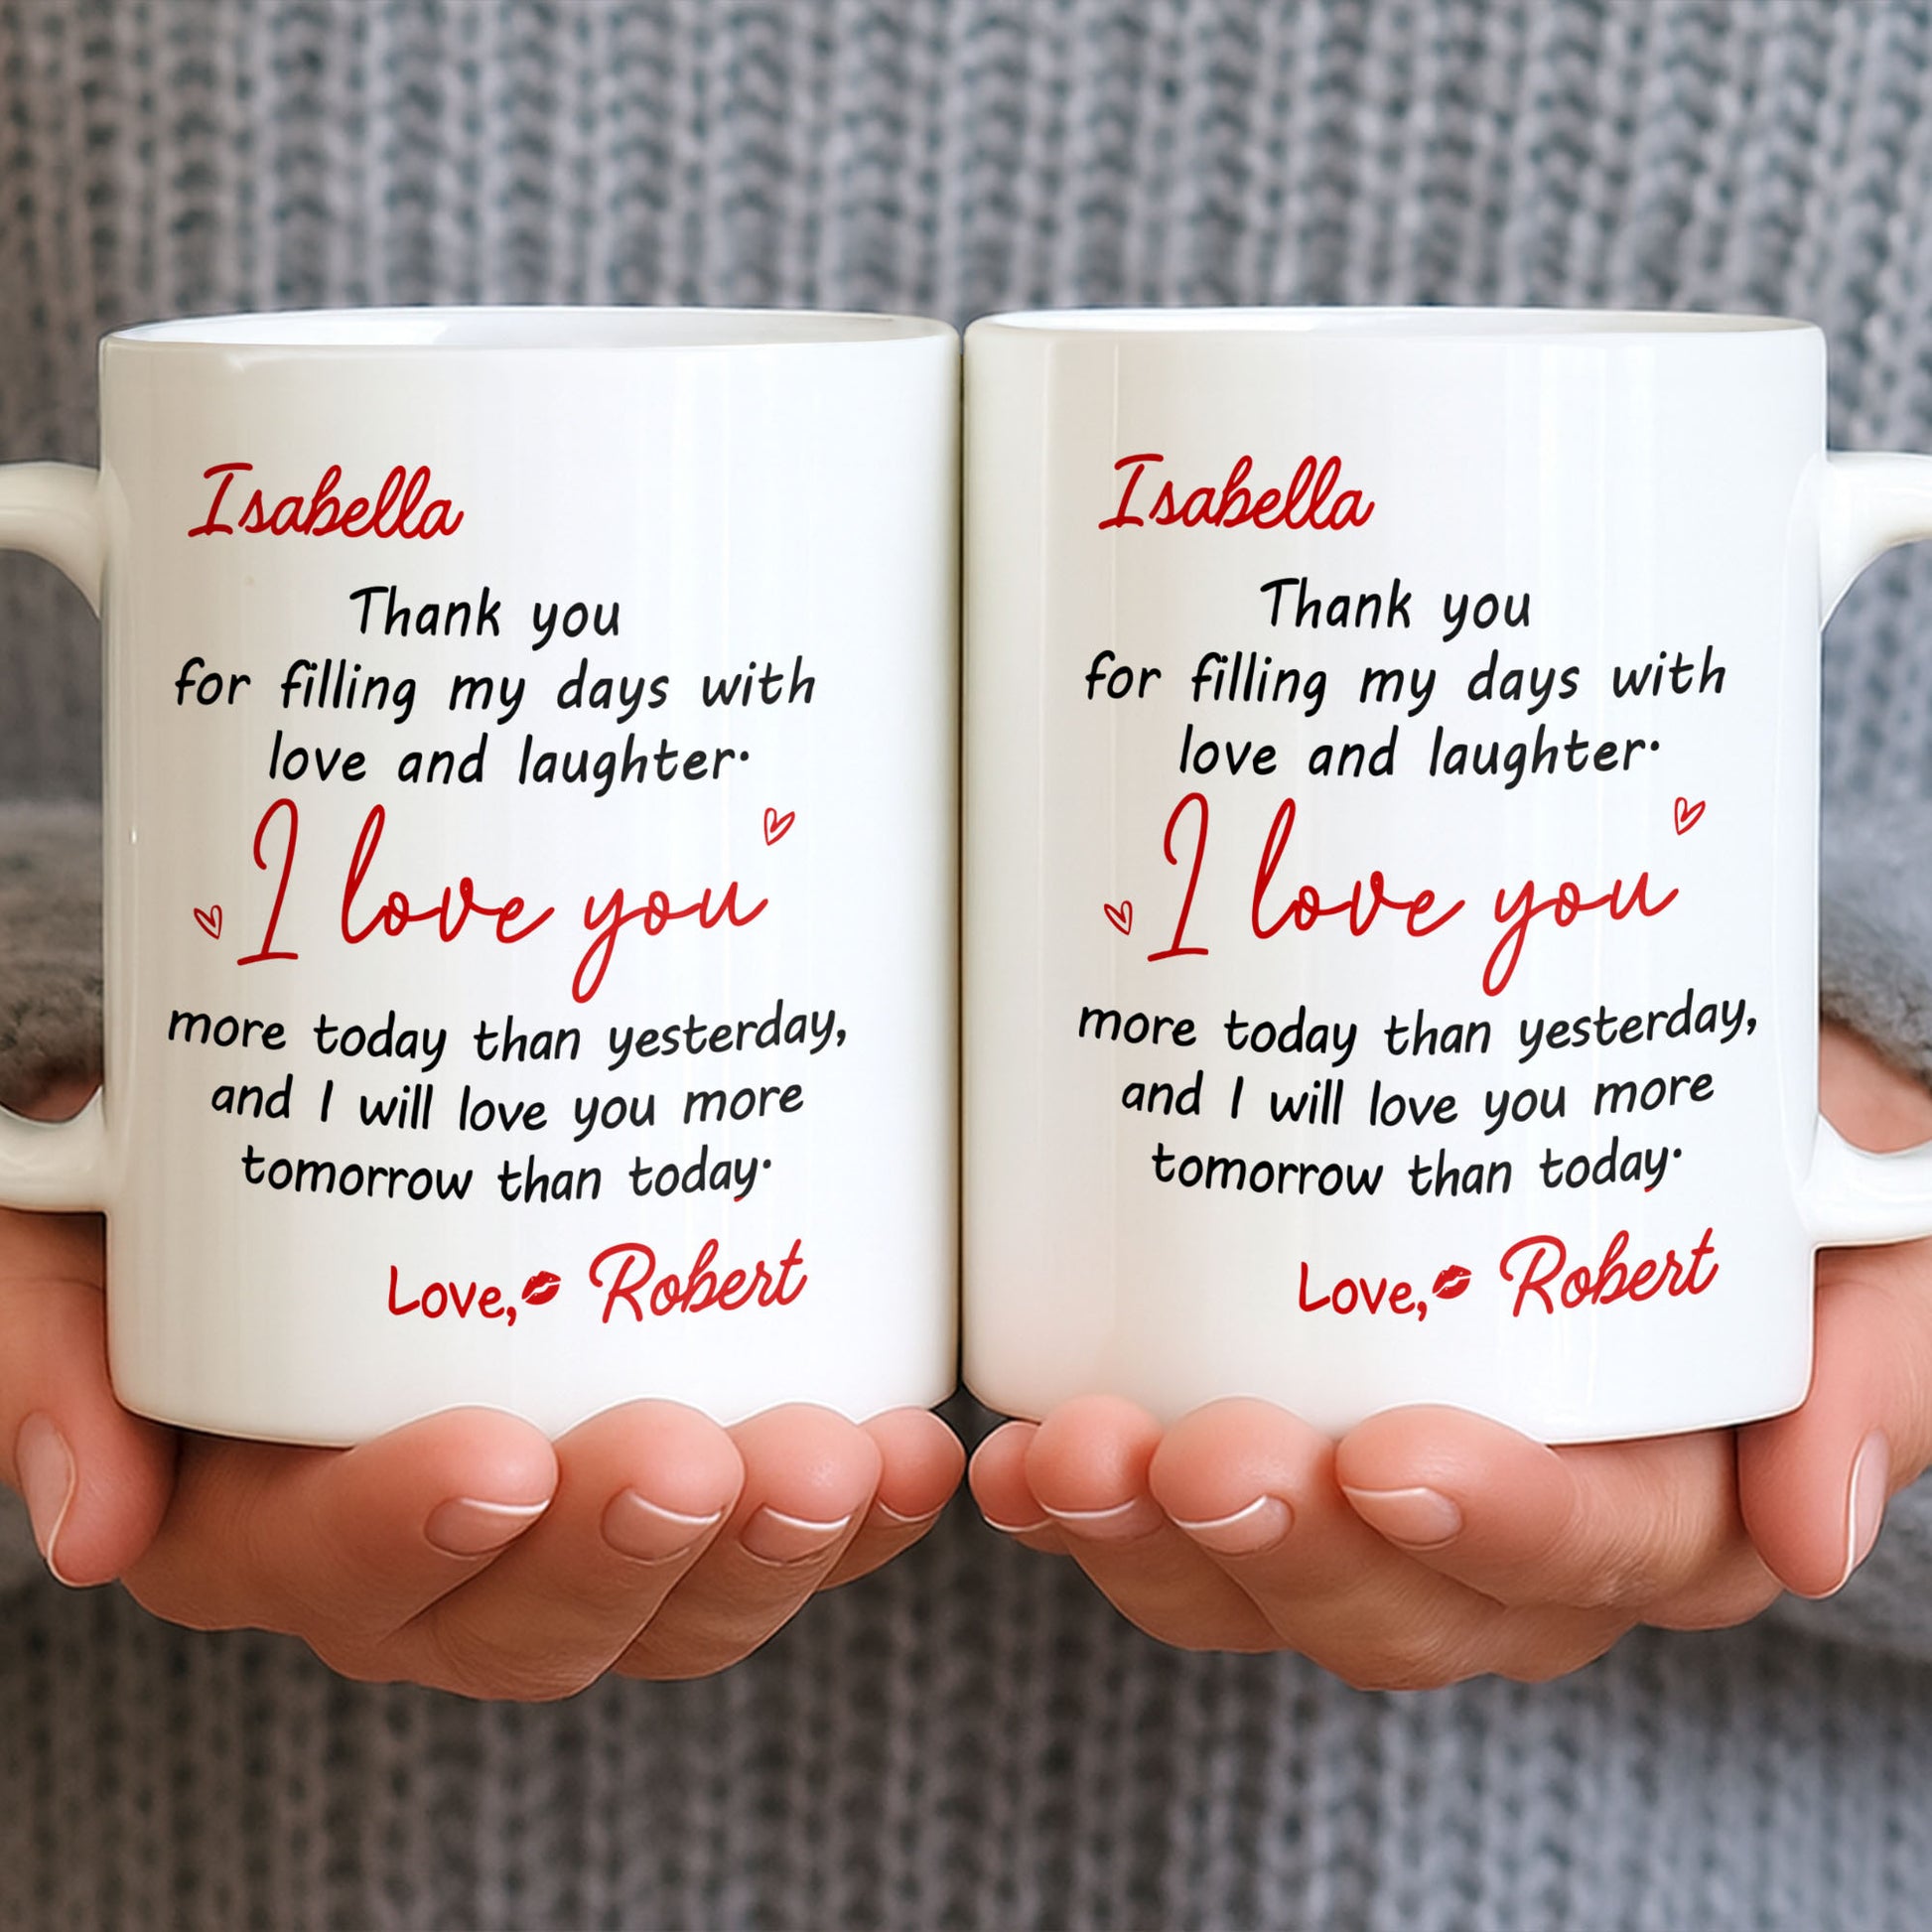 Isabella
Thank you
for filling my days with
love and laughter.
I love you
more today than yesterday,
and I will love you more
tomorrow than today.
Love, Robert
Isabella
Thank you
for filling my days with
love and laughter.
I love you
more today than yesterday,
and I will love you more
tomorrow than today.
Love, Robert